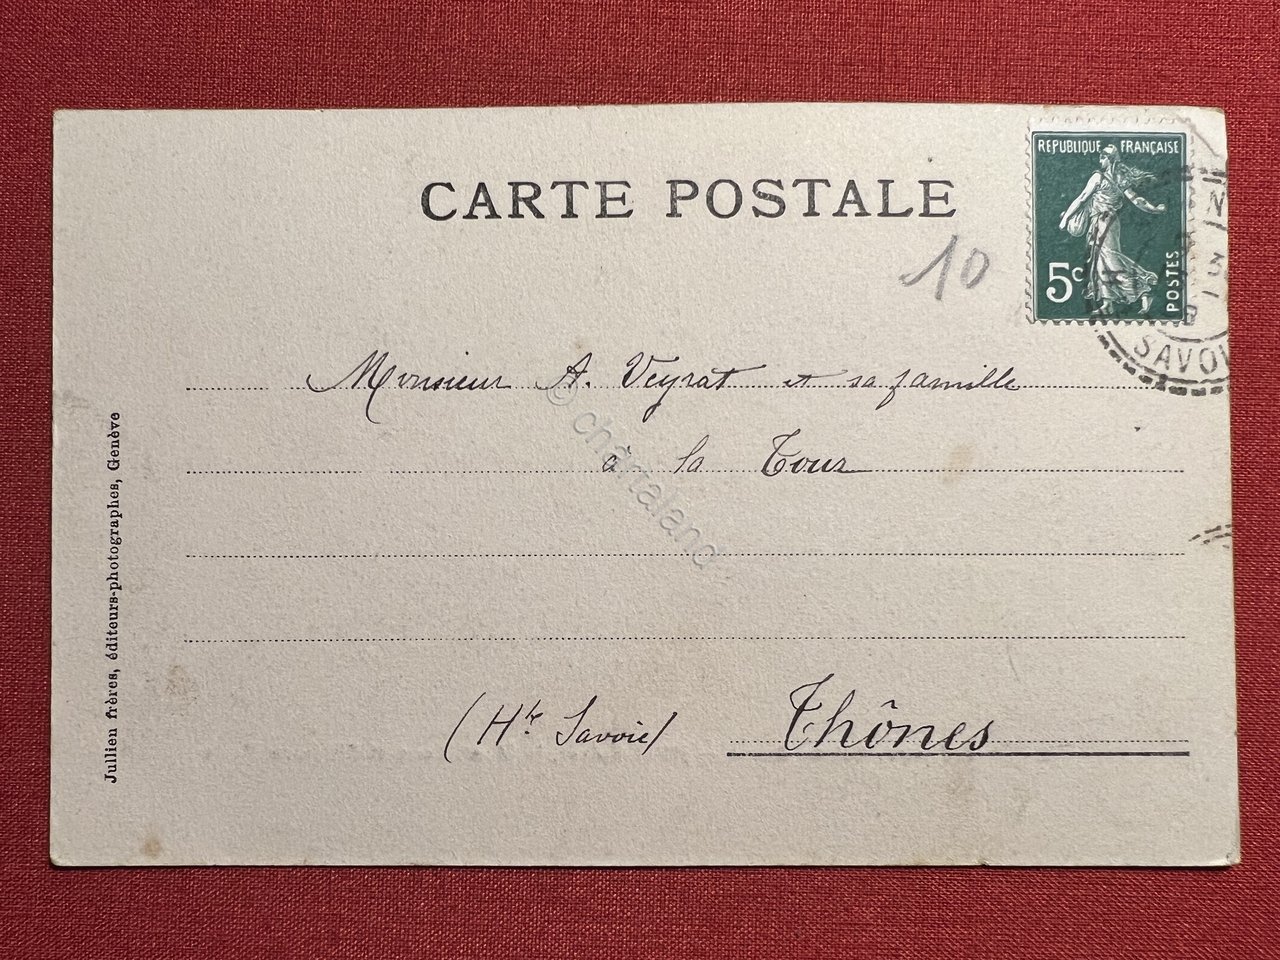 CARTE POSTALE
REPUBLIQUE FRANÇAISE
5c
POSTES
SAVOI
10
Monsieur A. Veyrat et sa famille
à la Tour
(Hte Savoie) Thônes
Jullien frères, éditeurs-photographes, Genève
© chartaland